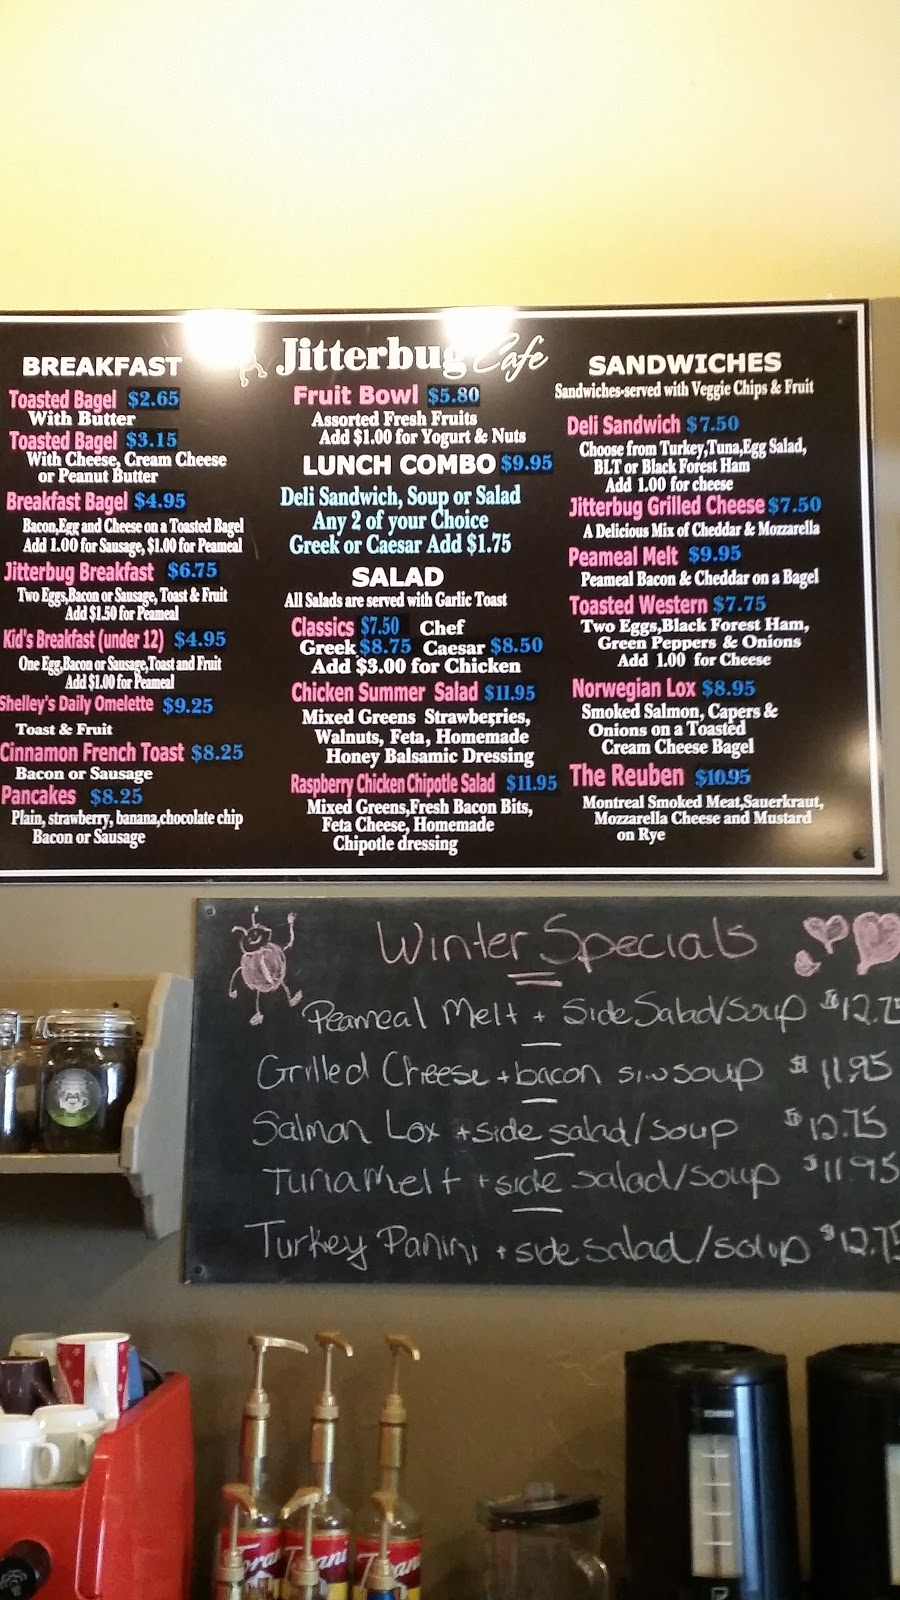 Jitterbug Cafe
BREAKFAST
Toasted Bagel $2.65
With Butter
Toasted Bagel $3.15
With Cheese, Cream Cheese
or Peanut Butter
Breakfast Bagel $4.95
Bacon,Egg and Cheese on a Toasted Bagel
Add 1.00 for Sausage, $1.00 for Peameal
Jitterbug Breakfast $6.75
Two Eggs,Bacon or Sausage, Toast & Fruit
Add $1.50 for Peameal
Kid's Breakfast (under 12) $4.95
One Egg,Bacon or Sausage,Toast and Fruit
Add $1.00 for Peameal
Shelley's Daily Omelette $9.25
Toast & Fruit
Cinnamon French Toast $8.25
Bacon or Sausage
Pancakes $8.25
Plain, strawberry, banana,chocolate chip
Bacon or Sausage
Fruit Bowl $5.80
Assorted Fresh Fruits
Add $1.00 for Yogurt & Nuts
LUNCH COMBO $9.95
Deli Sandwich, Soup or Salad
Any 2 of your Choice
Greek or Caesar Add $1.75
SALAD
All Salads are served with Garlic Toast
Classics $7.50 Chef
Greek $8.75 Caesar $8.50
Add $3.00 for Chicken
Chicken Summer Salad $11.95
Mixed Greens Strawberries,
Walnuts, Feta, Homemade
Honey Balsamic Dressing
Raspberry Chicken Chipotle Salad $11.95
Mixed Greens,Fresh Bacon Bits,
Feta Cheese, Homemade
Chipotle dressing
SANDWICHES
Sandwiches-served with Veggie Chips & Fruit
Deli Sandwich $7.50
Choose from Turkey,Tuna,Egg Salad,
BLT or Black Forest Ham
Add 1.00 for cheese
Jitterbug Grilled Cheese $7.50
A Delicious Mix of Cheddar & Mozzarella
Peameal Melt $9.95
Peameal Bacon & Cheddar on a Bagel
Toasted Western $7.75
Two Eggs,Black Forest Ham,
Green Peppers & Onions
Add 1.00 for Cheese
Norwegian Lox $8.95
Smoked Salmon, Capers &
Onions on a Toasted
Cream Cheese Bagel
The Reuben $10.95
Montreal Smoked Meat,Sauerkraut,
Mozzarella Cheese and Mustard
on Rye
Winter Specials
Peameal Melt + Side Salad/Soup $12.7
Grilled Cheese + bacon soup $11.95
Salmon Lox + side salad/soup $12.75
Tuna Melt + side salad/soup $11.95
Turkey Panini + side salad/soup $12.75
Torani
Torani
Torani